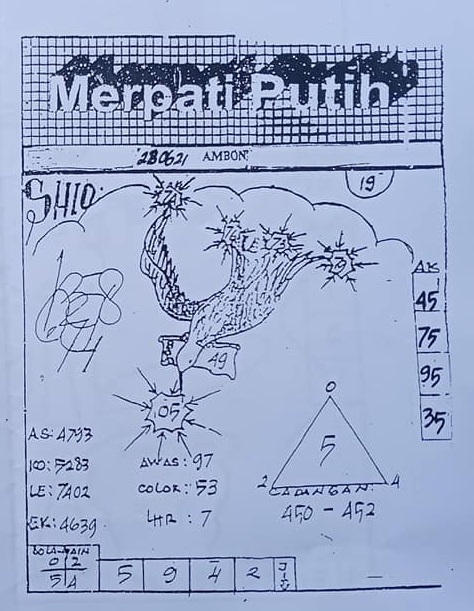 Merpati Putih
280621 AMBON
SHIO:
19
AK
45
75
95
35
49
05
0
5
2 4
CADANGAN:
450 - 452
AS: 4793
KO: 5283
LE: 7402
EK: 4639
AWAS: 97
COLOK: 53
LHR: 7
BOLA MAIN
0 2
5 4
5 9 4 2